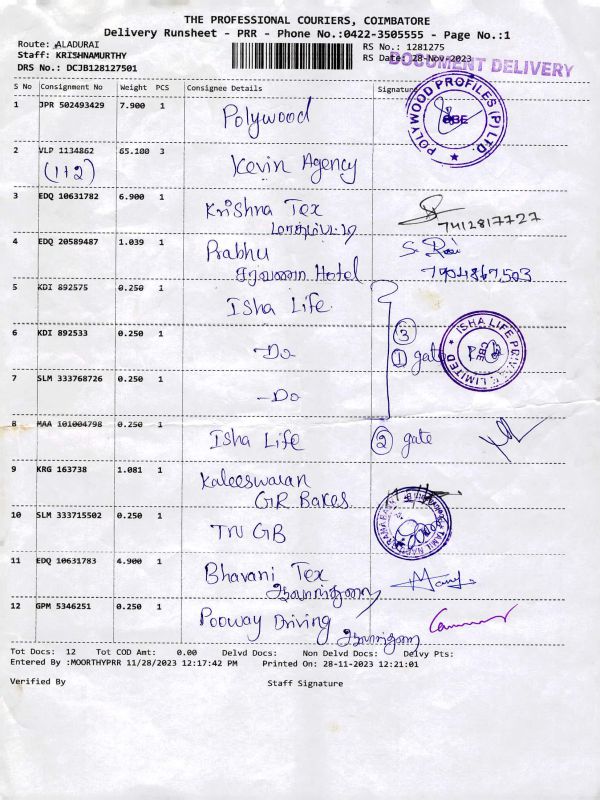 THE PROFESSIONAL COURIERS, COIMBATORE
Delivery Runsheet - PRR - Phone No.:0422-3505555 - Page No.:1
Route: ALADURAI
Staff: KRISHNAMURTHY
DRS No.: DCJB128127501
RS No.: 1281275
RS Date: 28-Nov-2023
DOCUMENT DELIVERY
S No Consignment No Weight PCS Consignee Details Signature
1 JPR 502493429 7.900 1 Polywood
POLYWOOD PROFILES (P) LTD. CBE
2 VLP 1134862 65.100 3 Kevin Agency
(1+2)
3 EDQ 10631782 6.900 1 Krishna Tex
7412817727
4 EDQ 20589487 1.039 1 Prabhu
சரவணா Hotel
7904867503
5 KDI 892575 0.250 1 Isha Life
6 KDI 892533 0.250 1 -Do
③
① gate
ISHA LIFE PRIVATE LIMITED CBE
7 SLM 333768726 0.250 1 -Do
8 MAA 101004798 0.250 1 Isha Life ② gate
9 KRG 163738 1.081 1 Kaleeswaran
GR Bakes
10 SLM 333715502 0.250 1 TNGB
11 EDQ 10631783 4.900 1 Bhavani Tex
12 GPM 5346251 0.250 1 Pooway Driving
Tot Docs: 12 Tot COD Amt: 0.00 Delvd Docs: Non Delvd Docs: Delvy Pts:
Entered By :MOORTHYPRR 11/28/2023 12:17:42 PM Printed On: 28-11-2023 12:21:01
Verified By Staff Signature